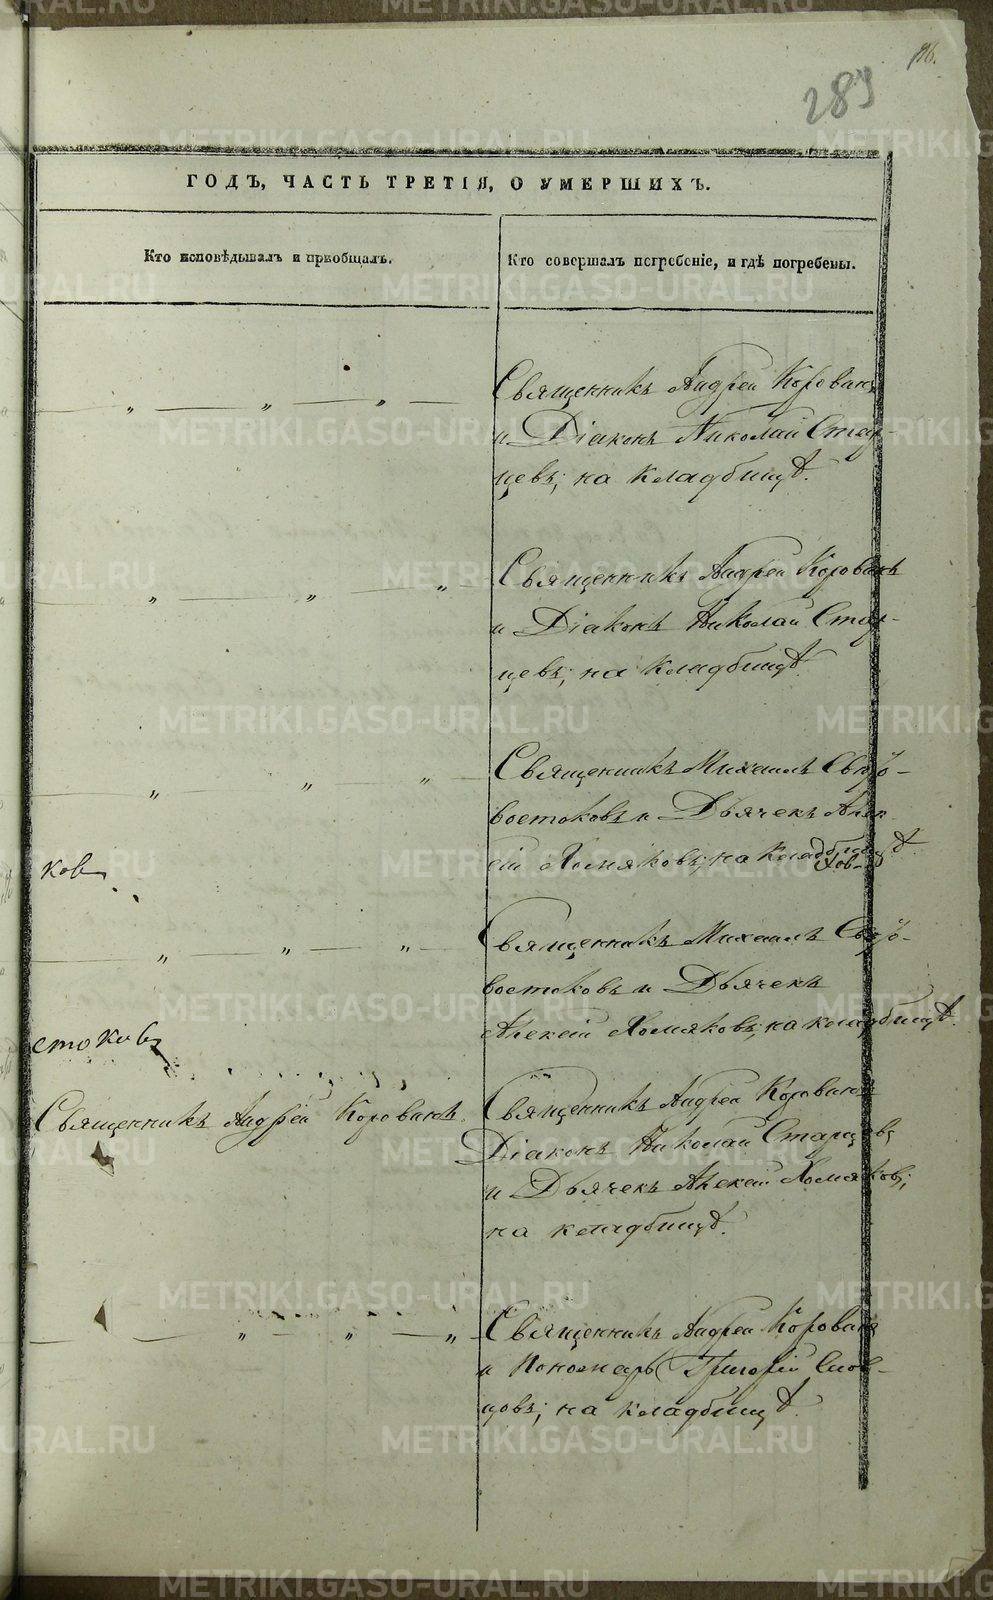 289
ГОДЪ, ЧАСТЬ ТРЕТІЯ, О УМЕРШИХЪ.
Кто исповѣдывалъ и пріобщалъ.
Кто совершалъ погребеніе, и гдѣ погребены.
— „ — „ — „ —
Священникъ Андрей Корованъ
и Діаконъ Николай Стар-
цевъ; на кладбищѣ.
— „ — „ — „
Священникъ Андрей Корованъ
и Діаконъ Николай Стар-
цевъ; на кладбищѣ.
— „ „ „ —
Священникъ Михаилъ
востоковъ и Дьячекъ Алек-
сій Хомяковъ; на кладбищѣ
ков
— „ — „ — „ —
Священникъ Михаилъ
востоковъ и Дьячекъ
Алексій Хомяковъ; на кладбищѣ.
стоковъ
Священникъ Андрей Корованъ.
Священникъ Андрей Корованъ
Діаконъ Николай Старцевъ
и Дьячекъ Алексій Хомяковъ;
на кладбищѣ.
— — „ — „ — „
Священникъ Андрей Корованъ
и Пономарь Григорій Слов-
цовъ; на кладбищѣ.
METRIKI.GASO-URAL.RU